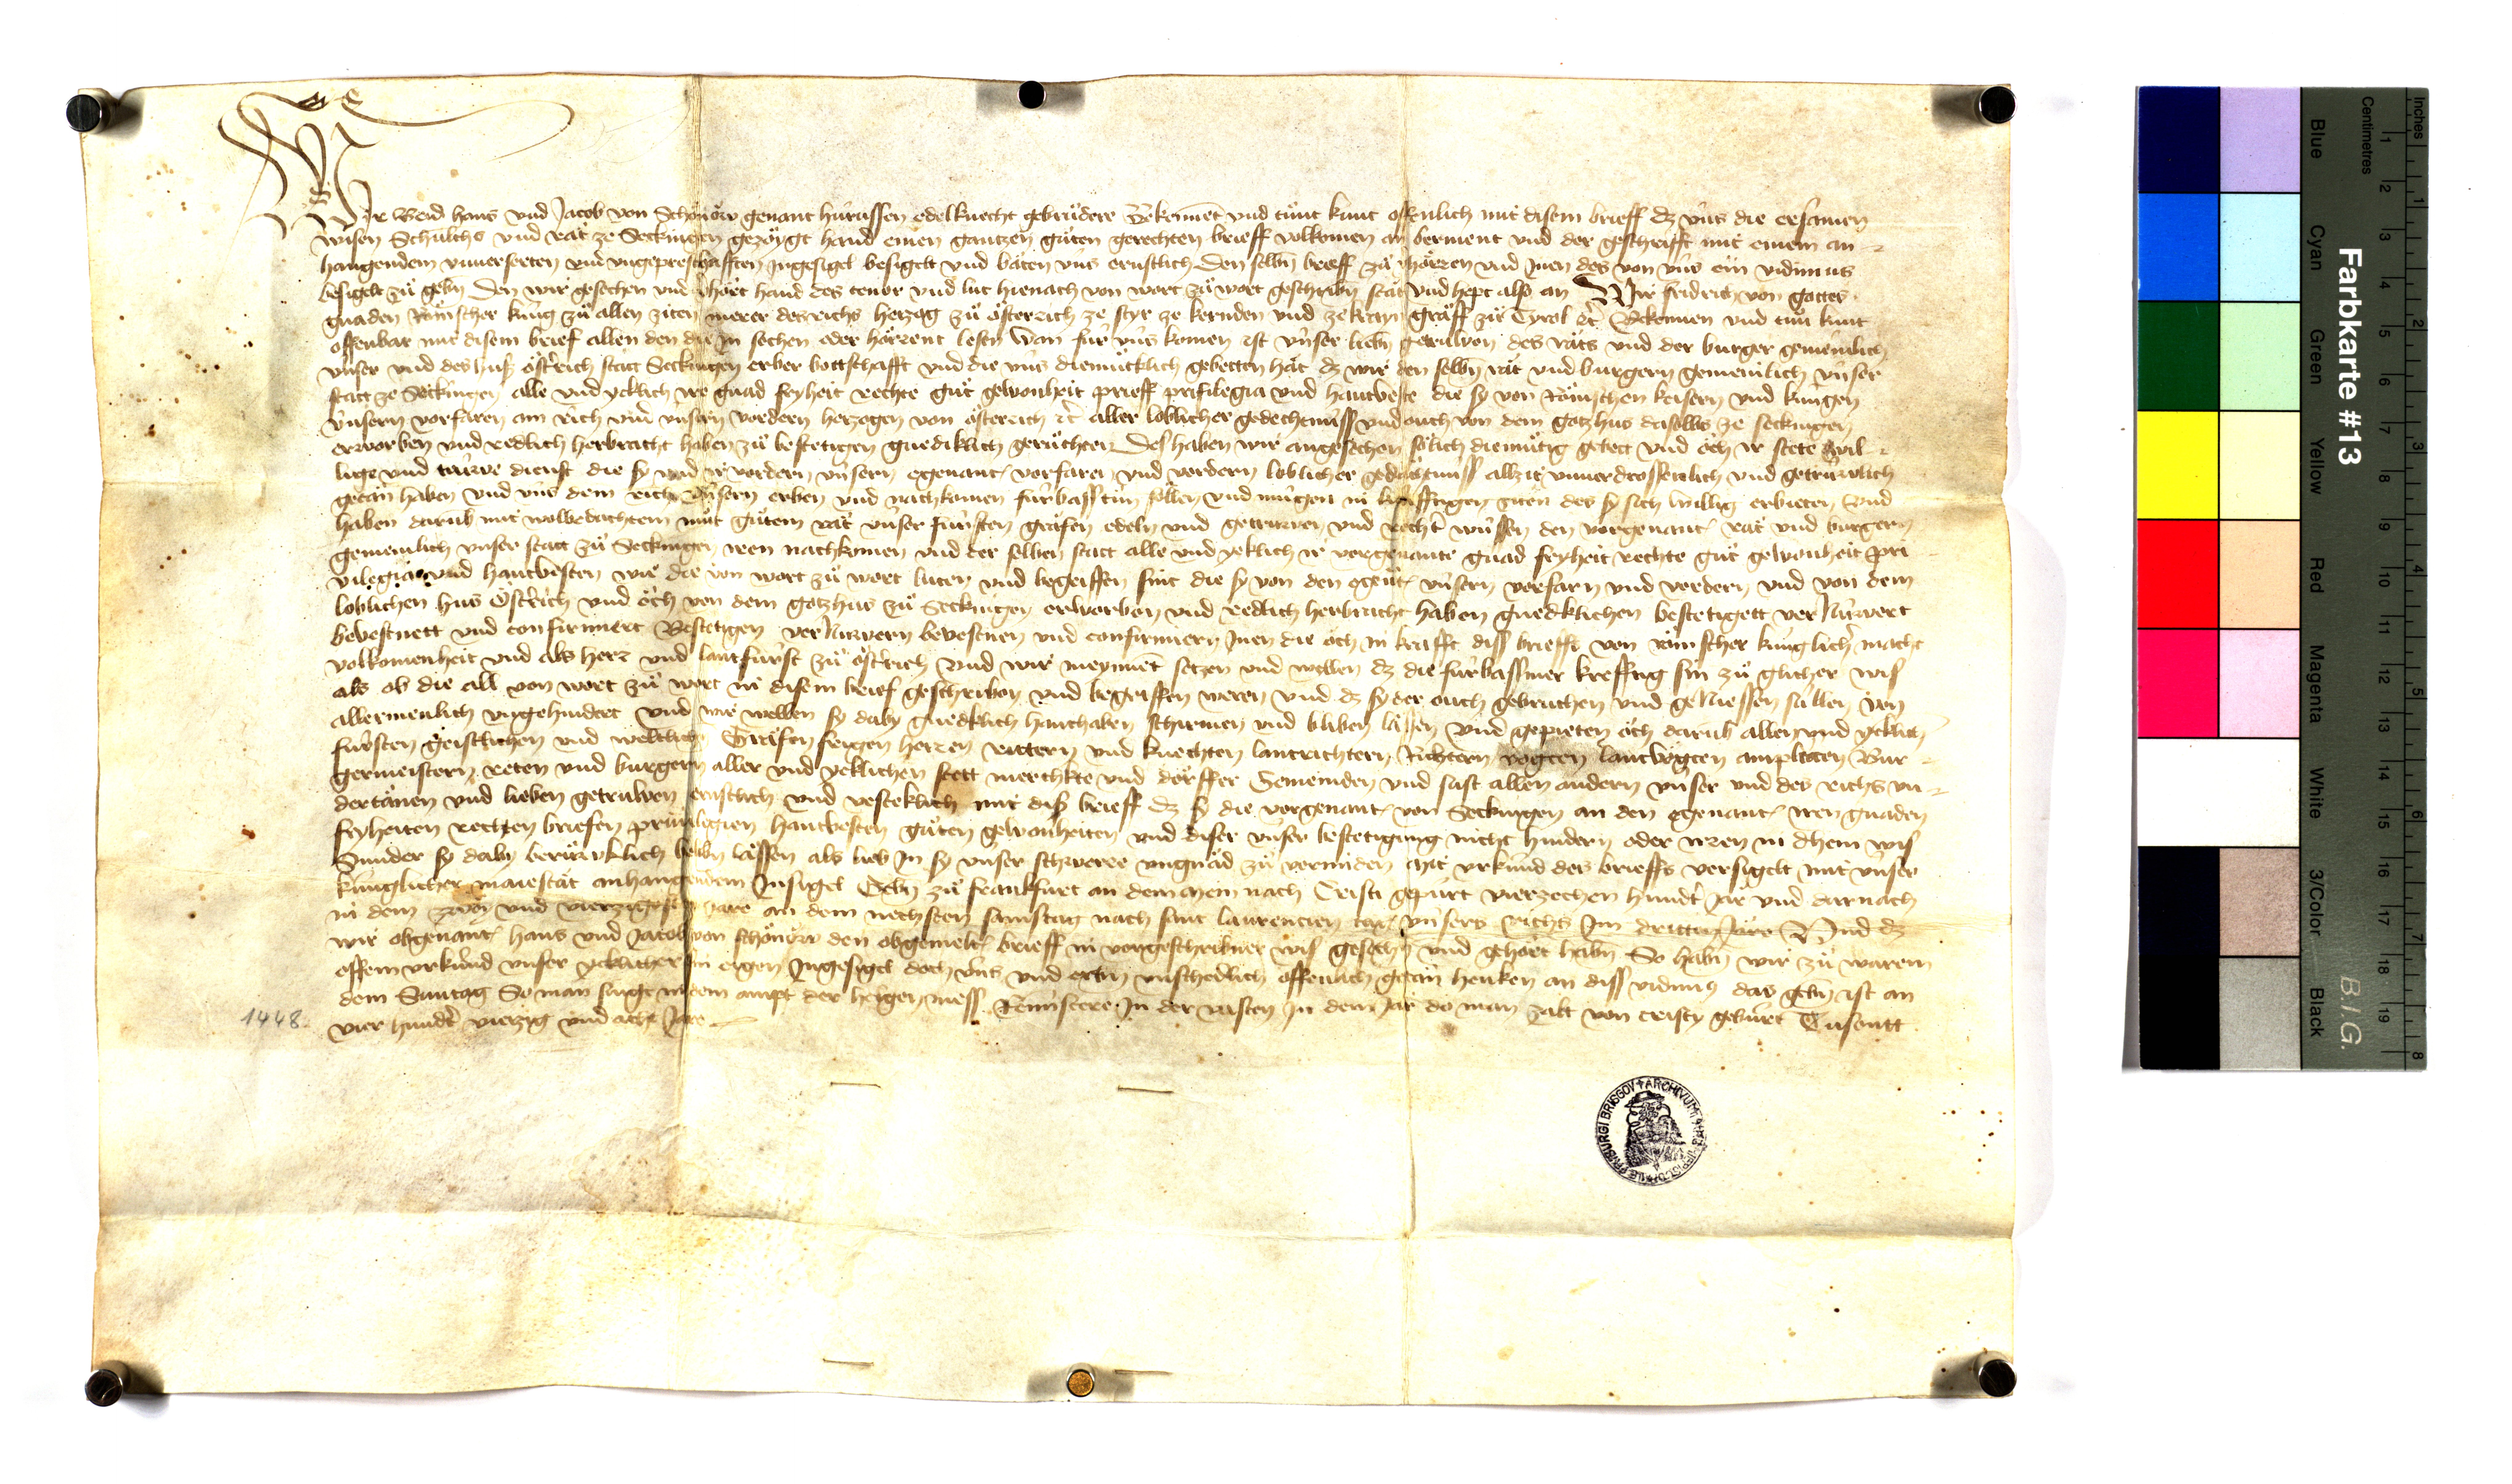 Wir beid hans vnd Jacob von Schönöw genant hürussen edelknecht gebrüdere Bekennēt vnd tünt kunt offenlich mit disem brieff dz vns die ersamen
wisen Schulths vnd rät ze Seckingen gezöygt hand einen gantzen güten gerechten brieff volkomen an berment vnd der geschrifft mit einem an
hangendem vnuerserten vnd vngepresthafften Ingesigel besigelt vnd bäten vns ernstlich Den selbn brieff zü hörren vnd Inen des von vns ein vidimus
besigelt zü gebn Den wir gesechen vnd ghört hand des tenor vnd lut hienach von wort zü wort geschribn stät vnd hept also an Wir fridrich von gottes
gnaden Römscher küng zü allen ziten merer des richs herzog zü österrich ze styr ze kernden vnd ze krayn gräff zü Tyrol etc Bekennen vnd tün kunt
offenbar mit disem brief allen den die In sechen oder hörrent lesen wan für vns komen ist vnser liebn getrüwen des räts vnd der burger gemeinlich
vnser vnd des huß östrich statt Seckingen erber bottschafft vnd die vns diemüetklich gebetten hät dz wir den selbn rät vnd burgern gemeinlich vnser
statt ze Seckingen alle vnd yeklich ire gnad fryheit rechte güt gewonheit brieff prifilegia vnd hantveste die sy von Römschen keisern vnd küngen
vnsern vorfaren am rich vnd vnsern vordern herzogen von österrich etc aller loblicher gedechtnuss vnd ouch von dem gotzhus daselbs ze seckingen
erworben vnd redlich herbracht haben zü bestetigen gnediklich gerüchten Des haben wir angesechen sölich diemütig gebett vnd öch ir stete wil
lige vnd trüwe dienst die sy vnd ir vordern vnsern egenant vorfaren vnd vordern loblicher gedächtnuss allzit vnuerdrossenlich vnd getrüwlich
getän haben vnd vns dem rich vnsern erben vnd nachkomen fürbass tün söllen vnd mügen in künfftigen ziten des sy sich willig erbieten Vnd
haben darüb mit wolbedachtem müt gütem rät vnser fürsten gräfen edeln vnd getrüwen vnd recht wüssen den vorgenant rät vnd burgern
gemeinlich vnser statt zü Seckingen iren nachkomen vnd der selben statt alle vnd yeklich ir vorgenante gnad fryheit rechte güt gewonheit pri
vilegia vnd hantvesten wie die von wort zü wort luten vnd begriffen sint die sy von den egent vnsern vorfarn vnd vordern vnd von dem
loblichen hus Östrich vnd öch von dem gotzhus zü Seckingen erworben vnd redlich herbracht haben gnedklichen bestetigett vernüwert
bevestnett vnd confirmiert Bestetigen vernüwern bevestnen vnd confirmiern Inen die och in krafft diss brieffs von römscher künglicher macht
volkomenheit vnd als herr vnd lantfürst zü östrich Vnd wir meynnēt setzen vnd wellen dz die fürbassmer krefftig sin zü glicher wis
als ob die all von wort zü wort in disem brief geschriben vnd begriffen weren vnd dz sy der ouch gebruchen vnd geniessen süllen von
allermenlich vngehindert vnd wir wellen sy daby gnedklich hanthaben schirmen vnd bliben lässen vnd gepieten öch darüb allen vnd yeklich
fürsten geistlichen vnd weltlich Gräfen freigen herren rittern vnd knechten lantrichtern Richtern vogten lantvögten amptluten Bur
germeistern reten vnd burgern aller vnd yeklichen stett merchkte vnd dörffer Gemeinden vnd sust allen andern vnser vnd des richs vn
dertänen vnd lieben getrüwen ernstlich vnd vesteklich mit disß brieff dz sy die vorgenant von Seckingen an den egenant iren gnaden
fryheiten rechten briefen priuilegien hantvesten güten gewonheiten vnd diser vnser bestetigung nicht hindern oder irren in dhein wis
Sunder sy daby berüwklich belibn lässen als lieb In sy vnser schwere vngnäd zü vermiden Mit vrkund des brieffs versigelt mit vnser
künglicher maiestät anhangendem Insigel Gebn zü frankfurt an dem mein nach Cristi gepürt vierzechen hundt Jär vnd darnach
in dem zwey vnd vierzigesten Jare an dem nechsten samstag nach sant laurencien tag vnsers richs Im dritten Järe Vnd dz
wir obgenant hans vnd Jacob von schönöw den obgemelt brieff in vorgeschribner wis gesechn vnd gehört habn So habn wir zü warem
offem vrkund vnser yeklicher sin eigen Ingesigel doch vns vnd erbn vnschedlich offenlich getän henken an diss vidimus das gebn ist an
dem Suntag So man singt in dem ampt der heigen mess Reminiscere In der vasten In dem Jär do man zalt von cristy gebürt Tusentt
vier hundt vierzig vnd acht Jare
1448.
ARCHIVUM
FRIBURGI BRISGOV
Farbkarte #13
B.I.G.
Inches
Centimetres
1 2 3 4 5 6 7 8
1 2 3 4 5 6 7 8 9 10 11 12 13 14 15 16 17 18 19
Blue
Cyan
Green
Yellow
Red
Magenta
White
3/Color
Black